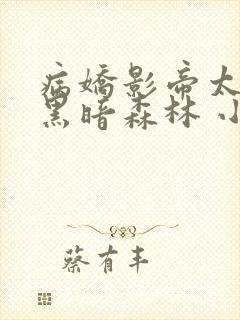 病嬌影帝太
黑暗森林 小
蔡有丰